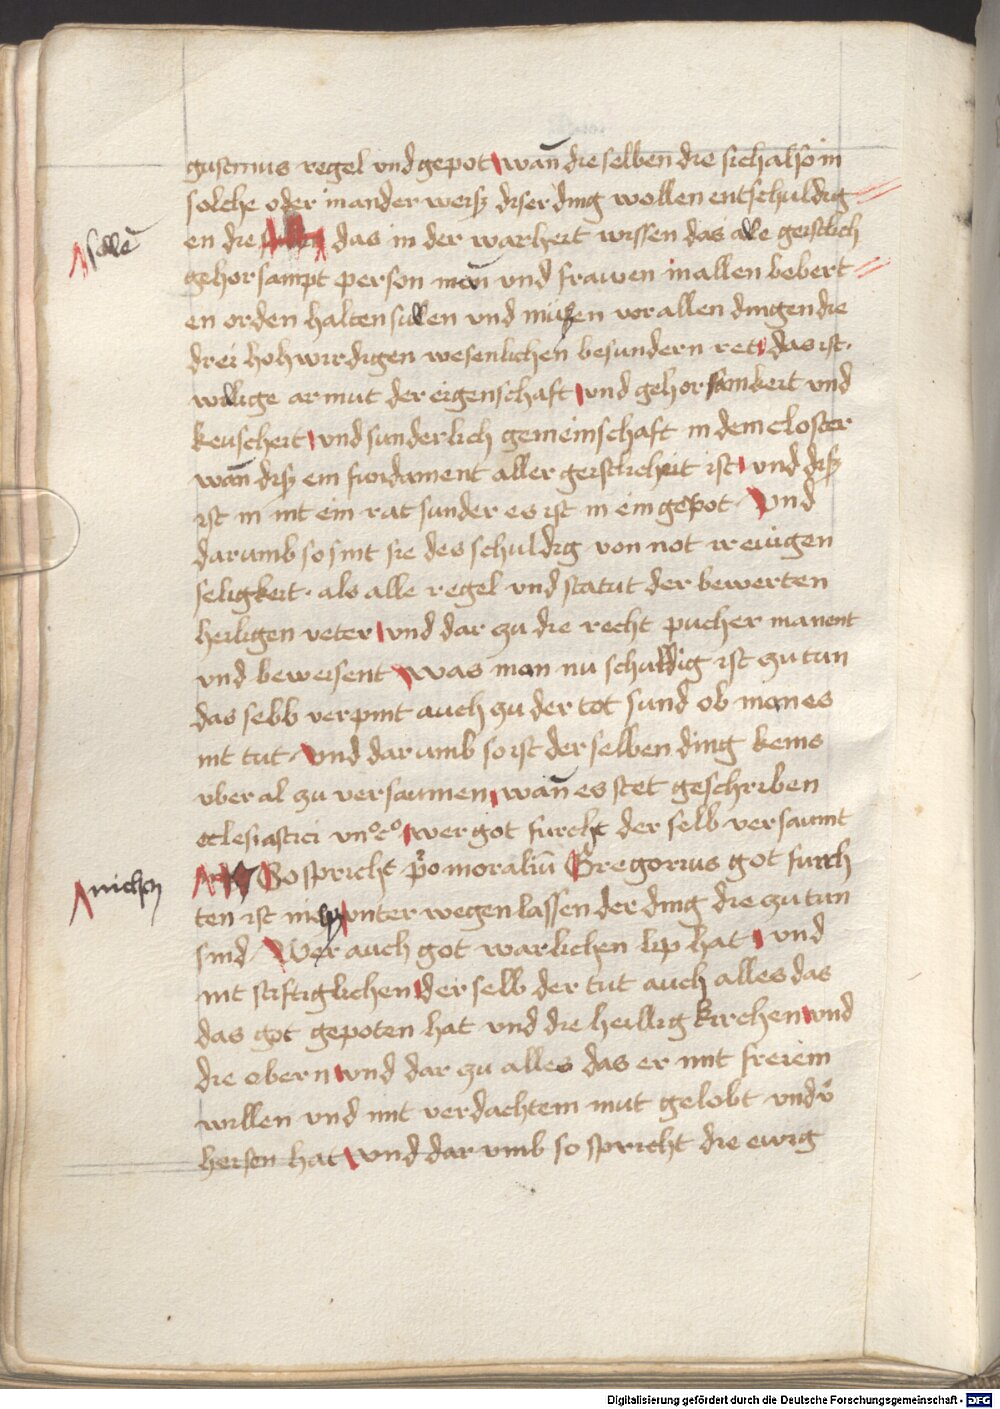 gustinus regel vnd gepot wañ die selben die sich also in
solche oder in ander weiß diser ding wollen entschuldig
solle᷑
en die das in der warheit wissen das alle geistlich
gehorsampt person man vnd frawen in allen bebert
en orden halten sullen vnd müßen vor allen dingen die
drei hohwirdigen wesenlichen besundern ret das ist·
willige armut der eigenschaft vnd gehorsamkeit vnd
keuscheit vnd sunderlich gemeinschaft in dem closter
wañ diß ein fundament aller geistlicheit ist vnd diß
ist in nit ein rat sunder es ist in ein gepot Vnd
darumb so sint sie des schuldig von not ir ewigen
seligkeit· als alle regel vnd statut der bewerten
heiligen veter vnd dar zu die recht pucher manent
vnd beweisent Was man nu schuldig ist zu tun
das selb verpint auch zu der tot sund ob man es
nit tut Vnd darumb so ist der selben ding keins
vber al zu versaumen wañ es stet geschriben
ecclesiastici vnº cº wer got furcht der selb versaumt
So spricht pͦo moraliū Gregorius got furch
nichtz
ten ist unter wegen lassen der ding die zu tun
sind Wer auch got warlichen lip hat vnd
nit stiftiglichen der selb der tut auch alles das
das got gepoten hat vnd die heillig kirchen vnd
die obern vnd dar zu alles das er mit freiem
willen vnd mit verdachtem mut gelobt vnd v̄
heisen hat vnd dar vmb so spricht die ewig
Digitalisierung gefördert durch die Deutsche Forschungsgemeinschaft - DFG